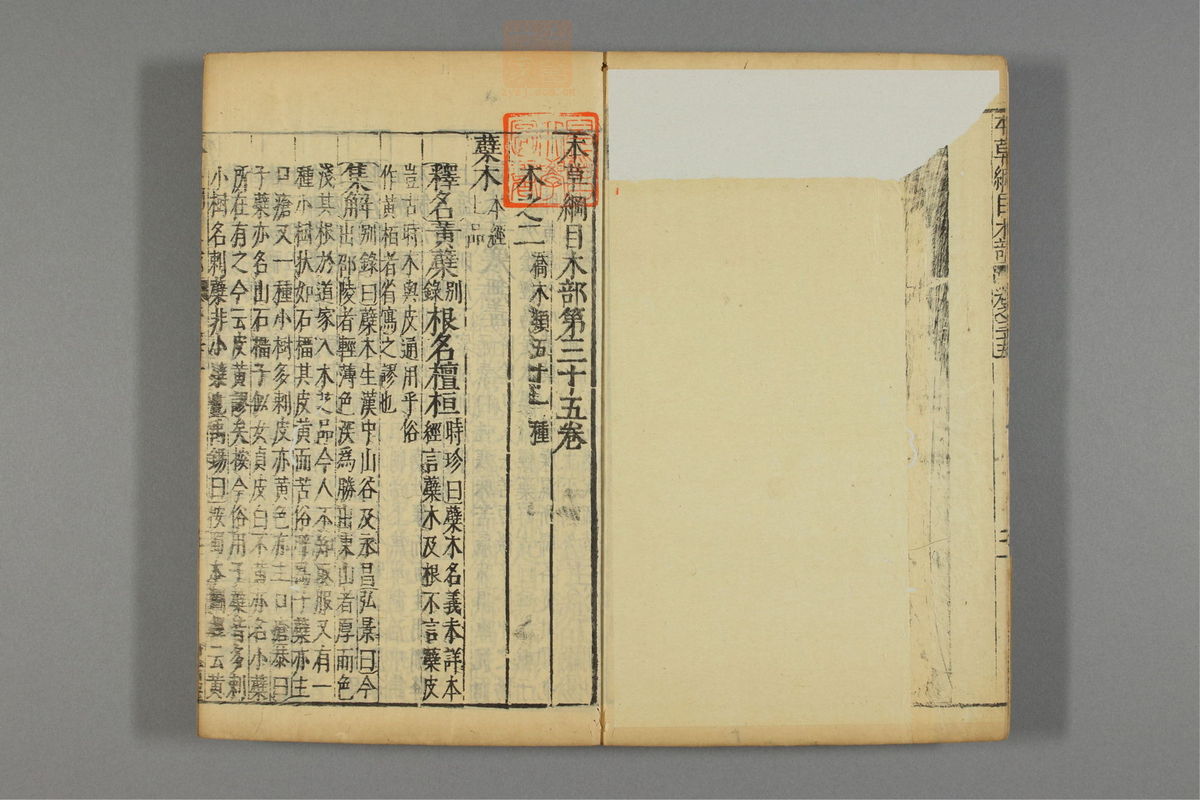 本草綱目木部第三十五卷
木之二 喬木類五十二種
蘗木 本經上品
釋名黃蘗別錄根名檀桓時珍曰蘗木名義未詳本
經言蘗木及根不言蘗皮
豈古時木與皮通用乎俗
作黃栢者省寫之謬也
集解別錄曰蘗木生漢中山谷及永昌弘景曰今
出邵陵者輕薄色深爲勝出東山者厚而色
淺其根於道家入木芝品今人不知取服又有一
種小樹狀如石榴其皮黃而苦俗呼爲子蘗亦主
口瘡又一種小樹多刺皮亦黃色亦主口瘡恭曰
子蘗亦名山石榴子似女貞皮白不黃亦名小蘗
所在有之今云皮黃謬矣按今俗用子蘗皆多刺
小樹名刺蘗非小蘗也禹錫曰按蜀本圖經云黃